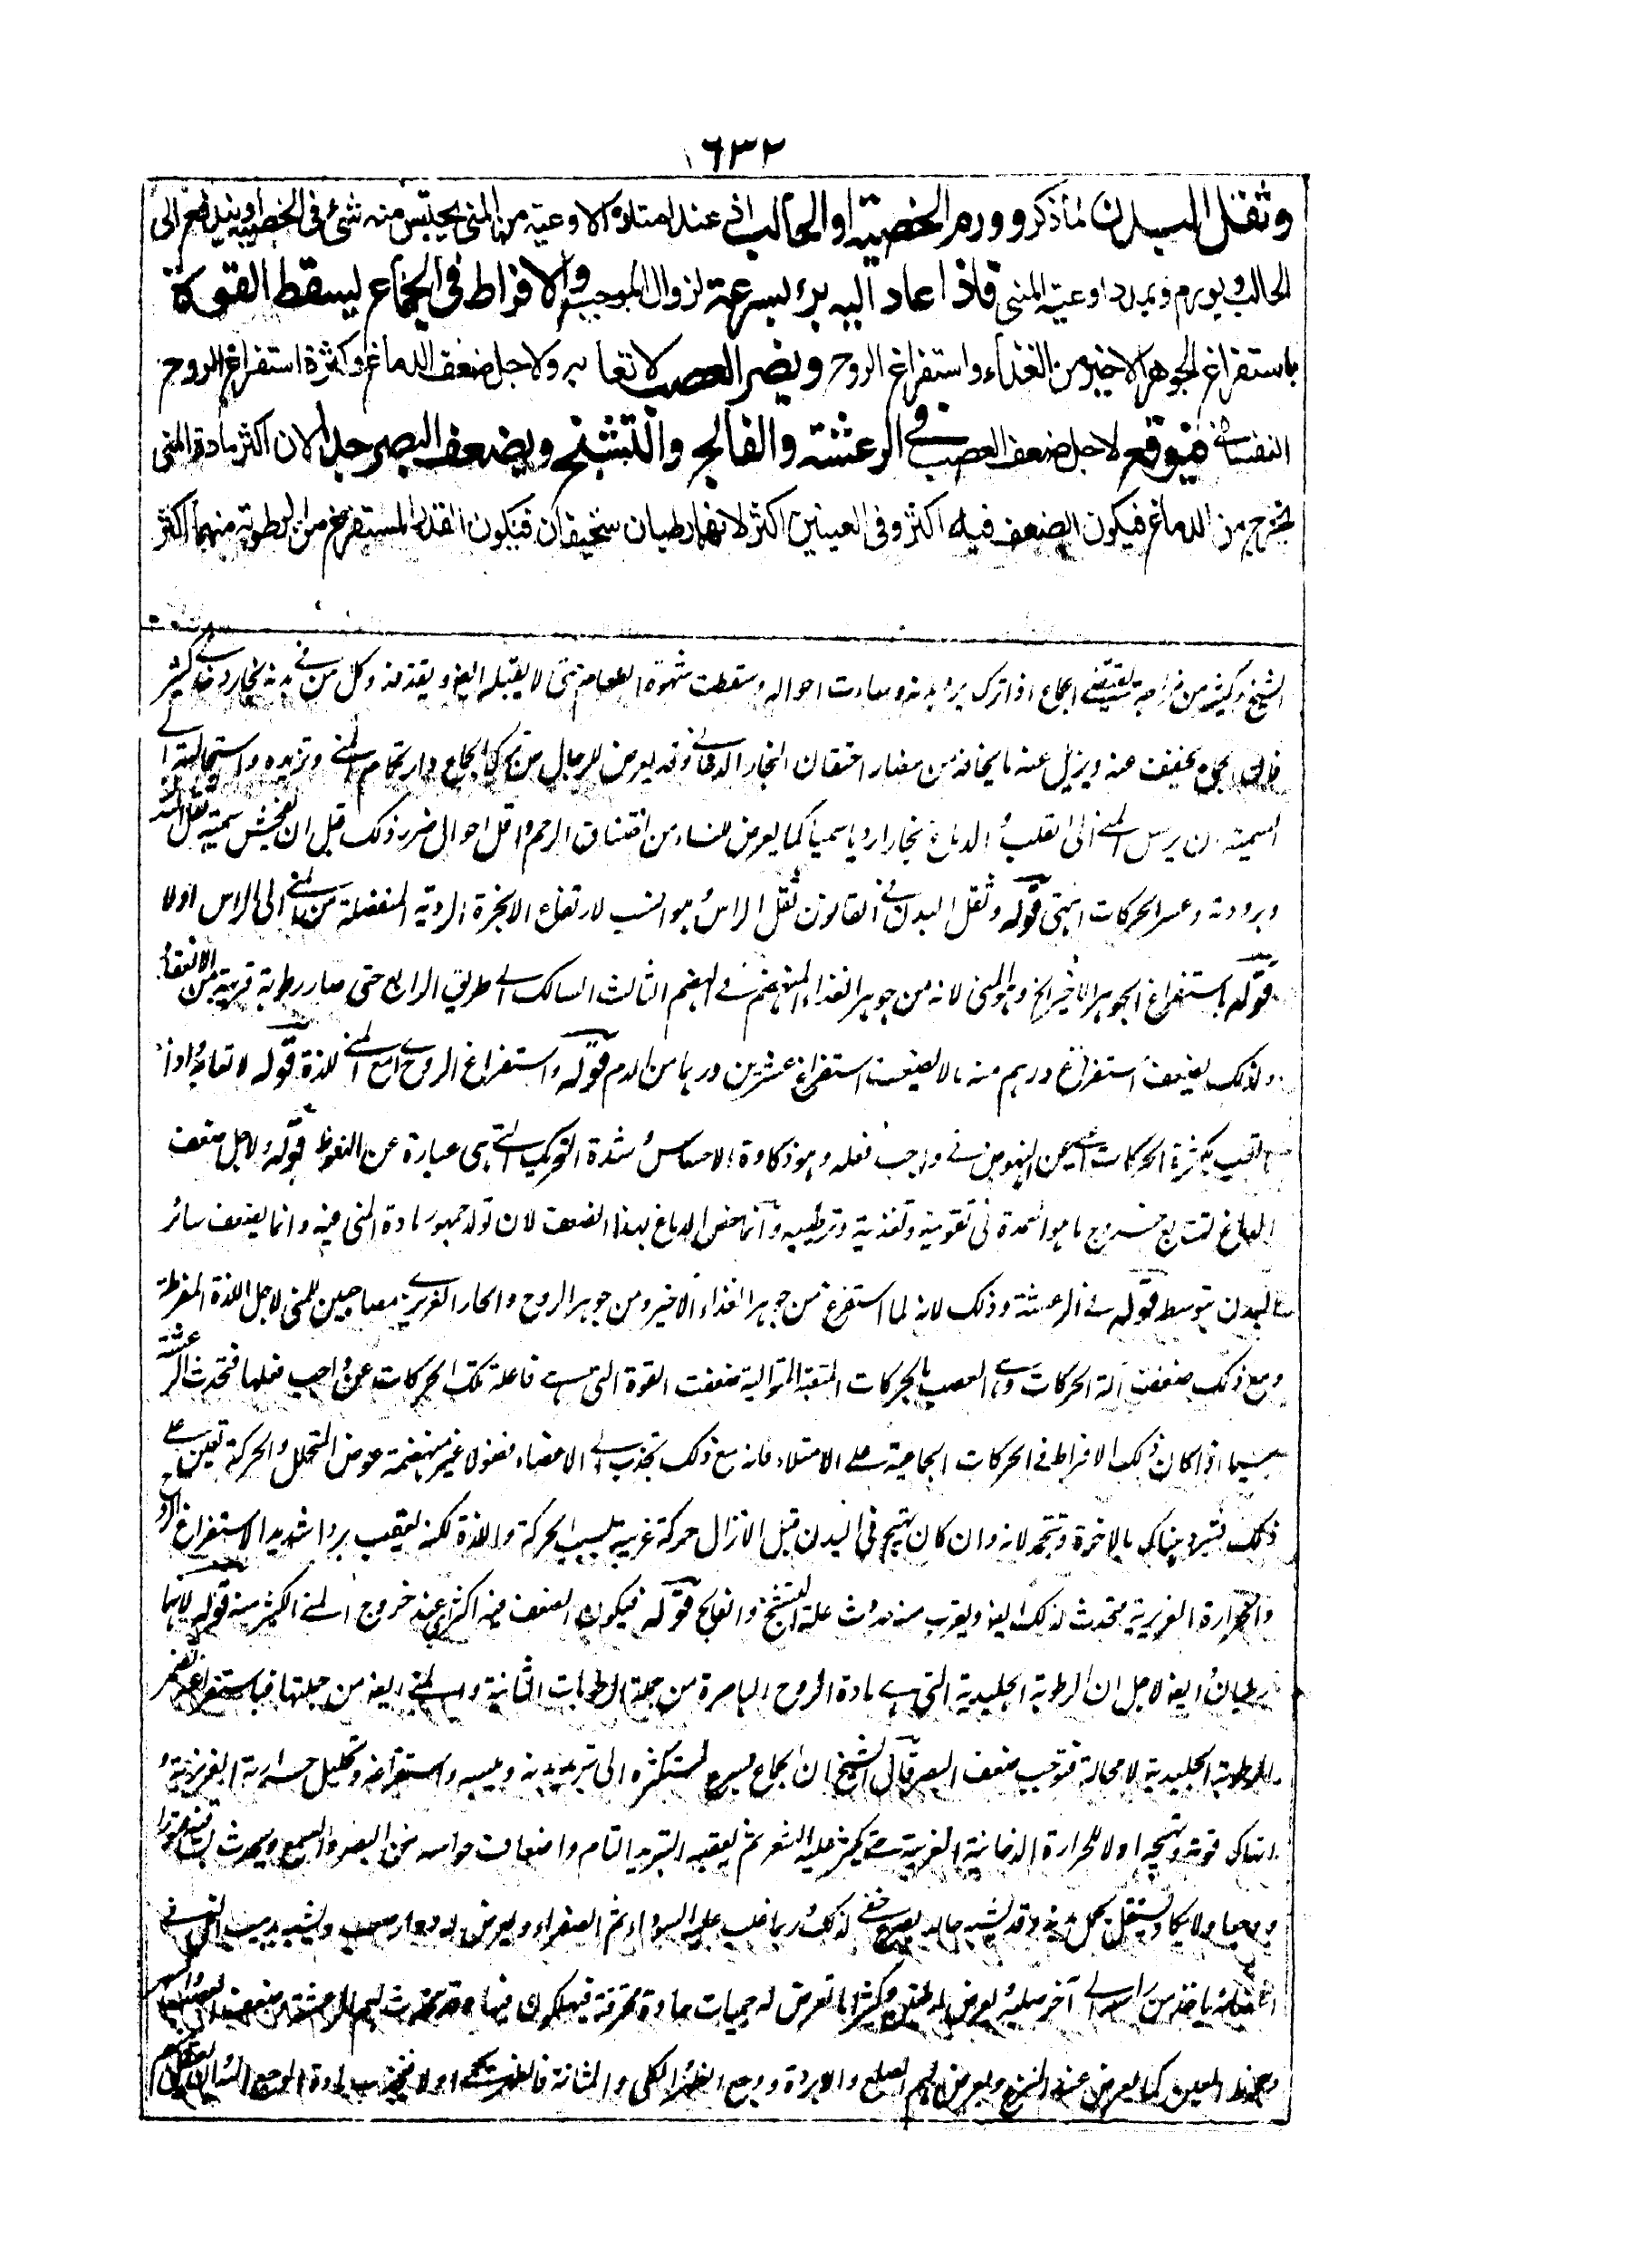 ٦٣٢
وثقل البدن لما ذكر وورم الخصية او الحالب اذ عند امتلاء الاوعية من المنى يحتبس منه شئ فى الخصية او يندفع الى
الحالب ويورم ويمدد اوعية المنى فاذا عاد اليه برء بسرعة لزوال الموجب والافراط فى الجماع يسقط القوة
باستفراغ الجوهر الاخير من الغذاء واستفراغ الروح ويضر العصب لاتعابه ولاجل ضعف الدماغ وكثرة استفراغ الروح
النفسانى فيوقع لاجل ضعف العصب فى الرعشة والفالج والتشنج ويضعف البصر جدا لان اكثر مادة المنى
يخرج من الدماغ فيكون الضعف فيه اكثر وفى العينين اكثر لانهما رطبان سخيفان فيكون القدر المستفرغ من الرطوبة منهما اكثر
الشيخ وكثير من مزاجه يقتضى الجماع اذا ترك برد بدنه وساءت احواله وسقطت شهوة الطعام حتى لا يقبله ايضا ويقذفه وكل من فى بدنه بخار دخانى كثير
فان الجماع يخفف عنه ويزيل عنه ما يخافه من مضار احتقان البخار الدخانى وقد يعرض للرجال من ترك الجماع وارتكام المنى وتبرده واستحالته الى
السمية ان يرسل المنى الى القلب والدماغ بخارا رديا سميا كما يعرض للنساء من اختناق الرحم واقل احوال ضرر ذلك قبل ان يفحش سميته ثقل البدن
وبرودته وعسر الحركات انتهى قوله وثقل البدن فى القانون ثقل الراس وهو انسب لارتفاع الابخرة الردية المنفصلة من المنى الى الراس اولا
قوله باستفراغ الجوهر الاخير الخ وهو المنى لانه من جوهر الغذاء المنهضم فى الهضم الثالث السالك الى طريق الرابع حتى صار رطوبة قريبة من الانعقاد
ولذلك يضعف استفراغ درهم منه مالا يضعف استفراغ عشرين درهما من الدم قوله واستفراغ الروح اى مع المنى للذة قوله لاتعابه اذ
العصب بكثرة الحركات يعيى عن النهوض فى واجب فعله وهو ذكاوة الاحساس وشدة التحريك التى هى عبارة عن النعوظ قوله ولاجل ضعف
الدماغ لتتابع خروج ما هو العمدة فى تقويته وتغذيته وترطيبه وانما خص الدماغ بهذا الضعف لان تولد جمهور مادة المنى فيه وانما يضعف سائر
البدن بتوسطه قوله فى الرعشة وذلك لانه لما استفرغ من جوهر الغذاء الاخير ومن جوهر الروح والحار الغريزى مصاحبين للمنى لاجل اللذة المفرطة
ومع ذلك ضعفت آلة الحركات وهى العصب بالحركات المتعبة المتوالية ضعفت القوة التى هى فاعلة تلك الحركات عن واجب فعلها فتحدث الرعشة
سيما اذا كان ذلك الافراط فى الحركات الجماعية على الامتلاء فانه مع ذلك تجذب الى الاعضاء فضولا غير منهضمة عوض المتحلل والحركة تعين على
ذلك فتبرد هناك بالاخرة وتتجمد لانه وان كان يهيج فى البدن قبل الانزال حركة غريبة بسبب الحركة واللذة لكنه يعقب بردا شديدا لاستفراغ الروح
والحرارة الغريزية فتحدث لذلك ايضا ويقرب منه حدوث علة التشنج والفالج قوله فيكون الضعف فيه اكثر اى عند خروج المنى الكثير منه قوله لانهما
رطبان ايضا لاجل ان الرطوبة الجليدية التى هى مادة الروح الباصرة من جملة الرطوبات الثانية والمنى ايضا من جملتها فباستفراغه تضر
الرطوبة الجليدية لا محالة فتوجب ضعف البصر قال الشيخ ان الجماع يسرع لمستكثره الى تبريد بدنه ويبسه واستفراغه وتحليل حرارته الغريزية و
انهاك قوته ويهيجه اولا للحرارة الدخانية الغريبة حتى يكثر عليه الشعر ثم يعقبه التبريد التام واضعاف حواسه من البصر والسمع ويحدث بساقيه فتورا
ووجعا ولا يكاد يستقل بحمل بدنه وقد يشبه حاله بصرع خفى لذلك وربما غلب عليه السوداء ثم الصفراء ويعرض له دوار صعب وشبيه بدبيب النمل فى
اعضائه ياخذ من راسه الى آخر صلبه ويعرض له طنين وكثيرا ما تعرض له حميات حادة محرقة فيهلكون فيها وقد يحدث لهم الرعشة وضعف العصب والسهر
وجحوظ العين كما يعرض عند النزع ويعرض لهم الصلع والابردة ووجع الظهر والكلى والمثانة